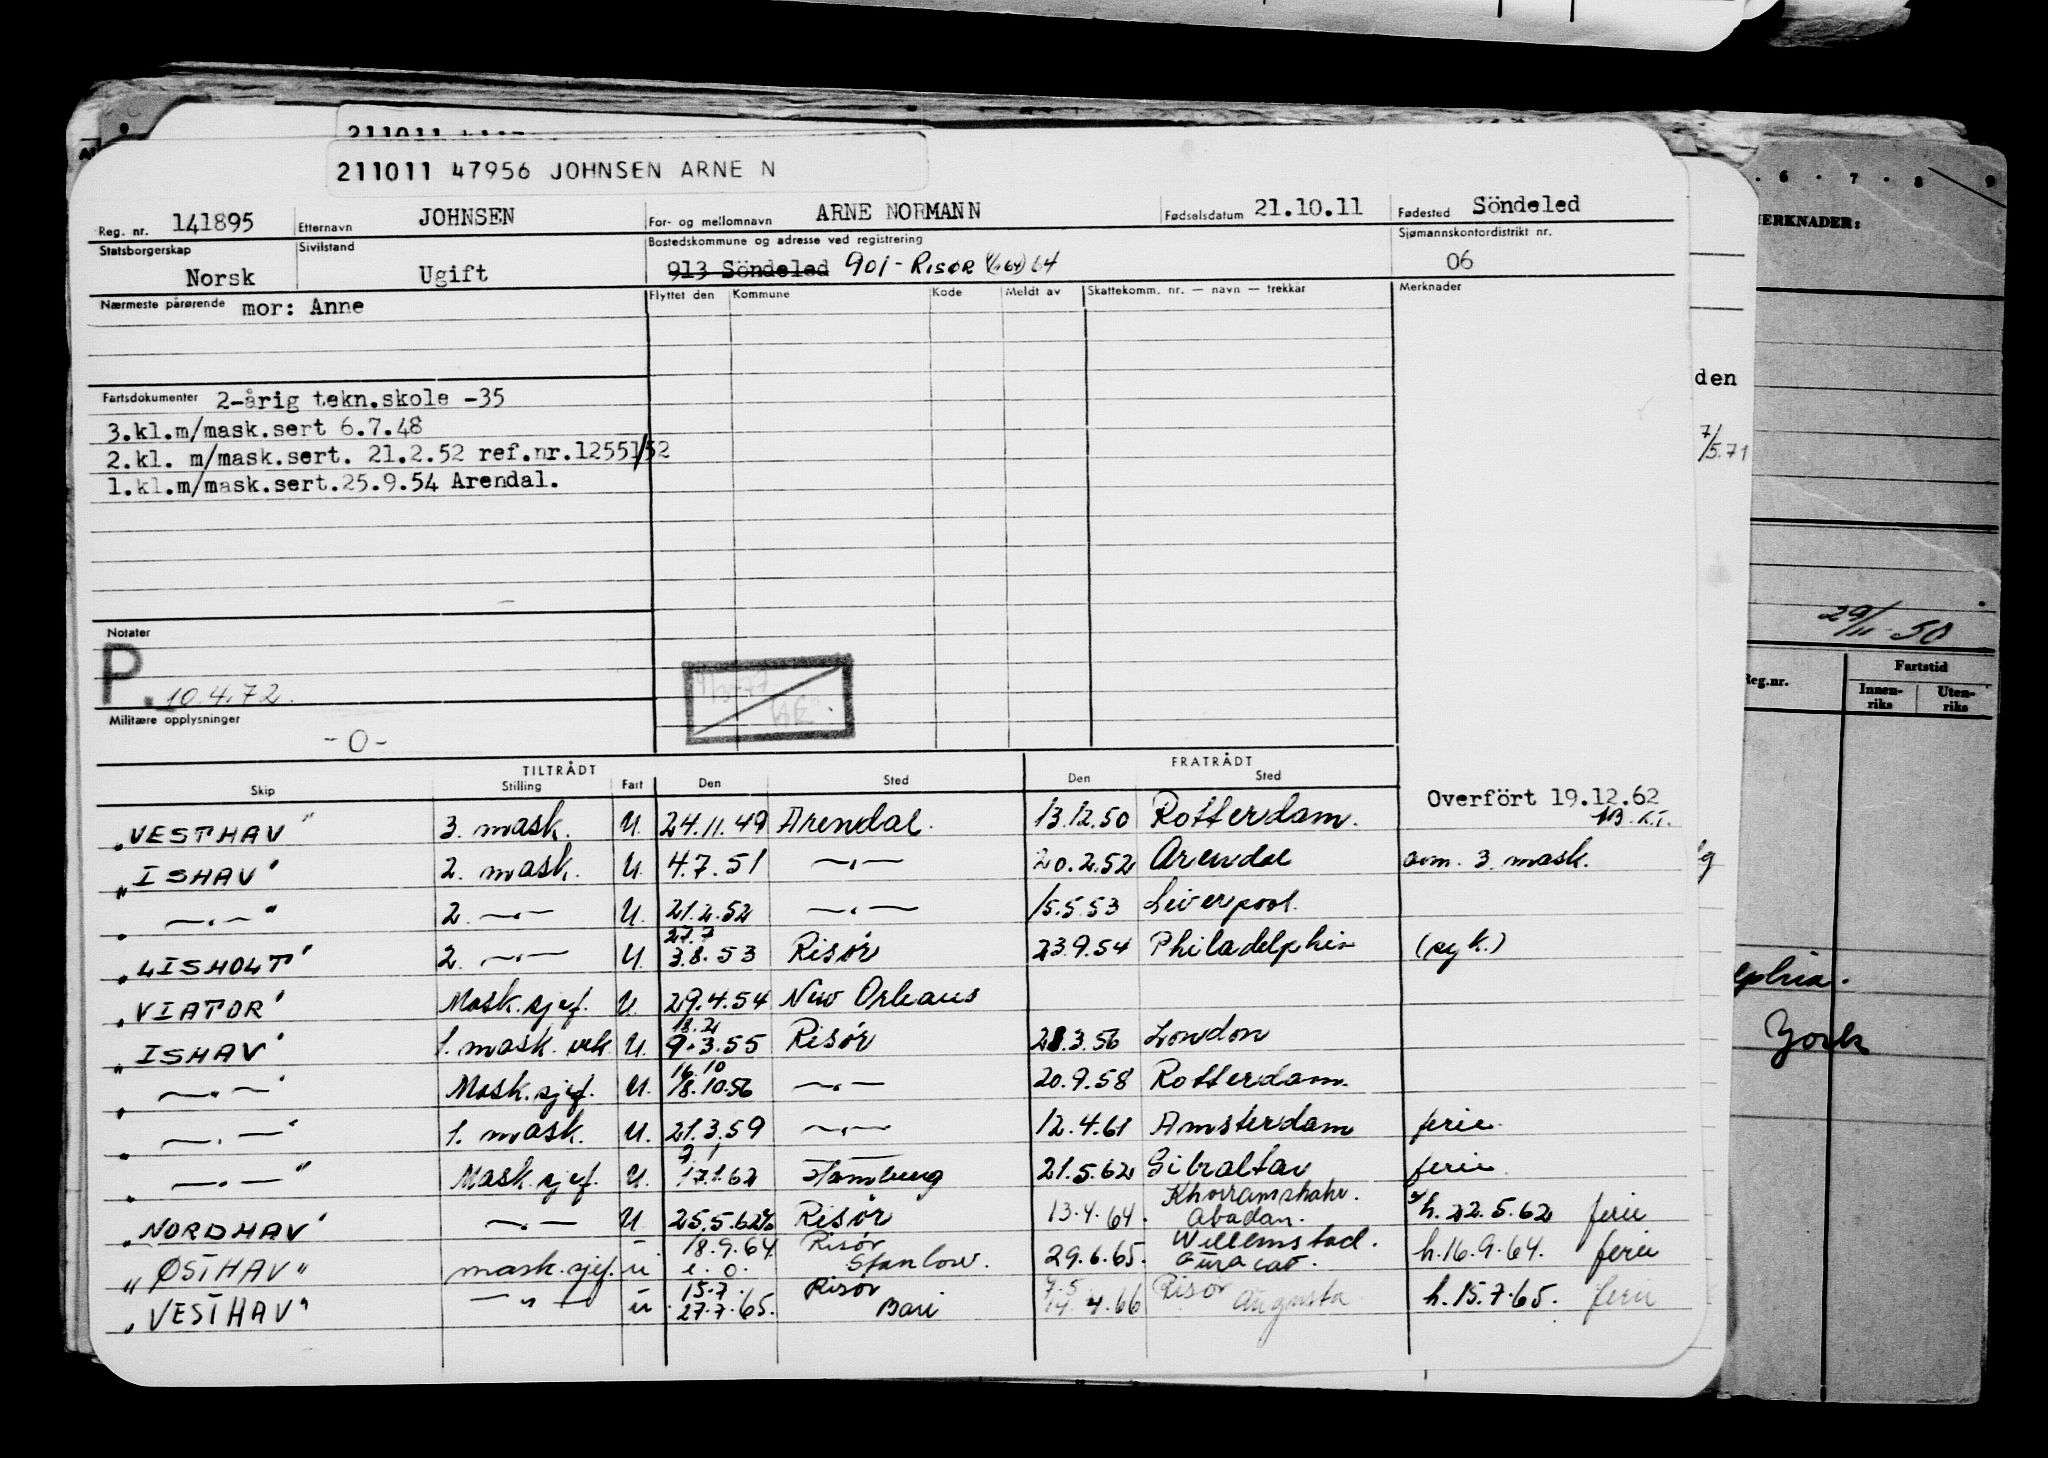 211011 47956 JOHNSEN ARNE N
Reg. nr. 141895 Etternavn JOHNSEN For- og mellomnavn ARNE NORMANN Fødselsdatum 21.10.11 Fødested Söndeled
Statsborgerskap Norsk Sivilstand Ugift Bostedskommune og adresse ved registrering 913 Söndeled 901 - RISØR Sjømannskontordistrikt nr. 06
Nærmeste pårørende mor: Anne Flyttet den Kommune Kode Meldt av Skattekomm. nr. — navn — trekkår Merknader
Fartsdokumenter 2-årig tekn.skole -35
3.kl.m/mask.sert 6.7.48
2.kl. m/mask.sert. 21.2.52 ref.nr.12551/52
1.kl.m/mask.sert.25.9.54 Arendal.
Notater
P. 10.4.72.
Militære opplysninger
-0-
TILTRÅDT FRATRÅDT
Skip Stilling Fart Den Sted Den Sted
Overfört 19.12.62
"VESTHAV" 3. mask. U. 24.11.49 Arendal. 13.12.50 Rotterdam.
"ISHAV" 2. mask. U. 4.7.51 —"— 20.2.52 Arendal avm. 3. mask.
" —"— " 2. —"— U. 21.2.52 —"— 15.5.53 Liverpool.
27.7
"LISHOLT" 2. —"— U. 3.8.53 Risør 23.9.54 Philadelphia (syk.)
"VIATOR" Mask.sjef. U. 29.4.54 New Orleans
18.2
"ISHAV" 1. mask. vik U. 9.3.55 Risør 28.3.56 London
16.10
" —"— " Mask.sjef. U. 18.10.56 —"— 20.9.58 Rotterdam.
" —"— " 1. mask. U. 21.3.59 —"— 12.4.61 Amsterdam ferie.
9.1
" —"— " Mask.sjef. U. 17.1.62 Hamburg 21.5.62 Gibraltar ferie
Khorramshahr.
"NORDHAV" —"— U. 25.5.62 Risør 13.4.64. Abadan. h.22.5.62 ferie
18.9.64 Risør Willemstad.
"ØSTHAV" mask.sjef. u i.o. Stanlow. 29.6.65. Curacao. h.16.9.64. ferie
15.7. Risør 7.5 Risør
"VESTHAV" —"— u 27.7.65. Bari 14.4.66 Augusta h.15.7.65. ferie
6 7 8 9
MERKNADER:
den
7/5.71
29/11-50
Reg.nr. Fartstid
Innen-riks Uten-riks
lphia.
York